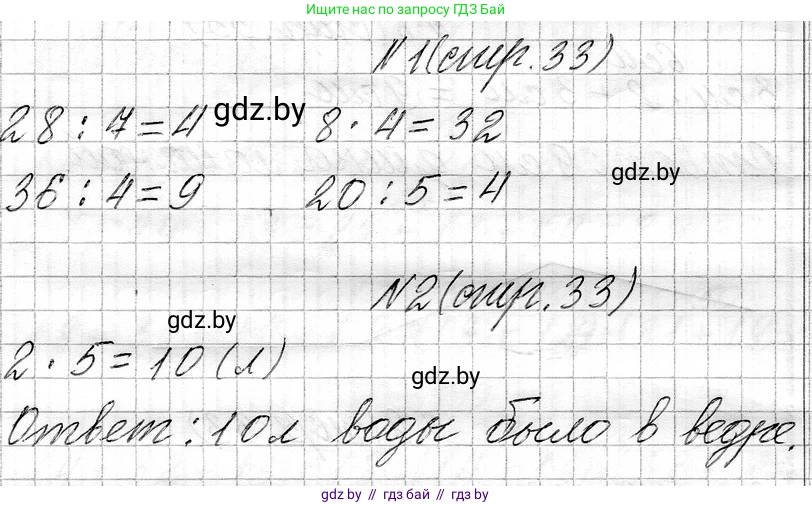 Ищите нас по запросу ГДЗ Бай
N1(стр.33)
28 : 7 = 4 gdz.by 8 · 4 = 32
36 : 4 = 9 20 : 5 = 4 gdz.by
N2(стр.33)
gdz.by
2 · 5 = 10 (л)
gdz.by
Ответ: 10л воды было в ведре.
gdz.by // гдз бай // gdz.by